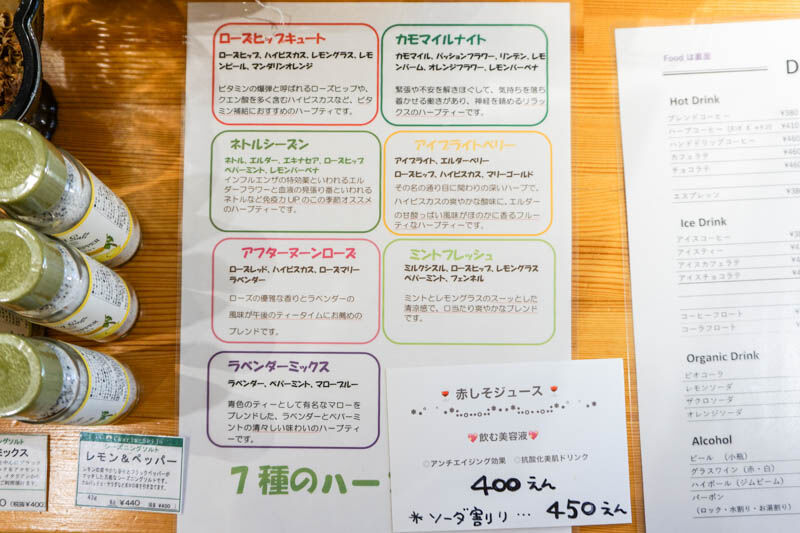 ローズヒップキュート
ローズヒップ、ハイビスカス、レモングラス、レモ
ンピール、マンダリンオレンジ
ビタミンの爆弾と呼ばれるローズヒップや、
クエン酸を多く含むハイビスカスなど、ビタ
ミン補給におすすめのハーブティです。
カモマイルナイト
カモマイル、パッションフラワー、リンデン、レモ
ンバーム、オレンジフラワー、レモンバーベナ
緊張や不安を解きほぐして、気持ちを落ち
着かせる働きがあり、神経を鎮めるリラッ
クスのハーブティーです。
ネトルシーズン
ネトル、エルダー、エキナセア、ローズヒップ
ペパーミント、レモンバーベナ
インフルエンザの特効薬といわれるエル
ダーフラワーと血液の見張り番といわれる
ネトルなど免疫力UPのこの季節オススメ
のハーブティーです。
アイブライトベリー
アイブライト、エルダーベリー
ローズヒップ、ハイビスカス、マリーゴールド
その名の通り目に関わりの深いハーブで、
ハイビスカスの爽やかな酸味に、エルダー
の甘酸っぱい風味がほのかに香るフルー
ティなハーブティーです。
アフターヌーンローズ
ローズレッド、ハイビスカス、ローズマリー
ラベンダー
ローズの優雅な香りとラベンダーの
風味が午後のティータイムにお薦めの
ブレンドです。
ミントフレッシュ
ミルクシスル、ローズヒップ、レモングラス
ペパーミント、フェンネル
ミントとレモングラスのスーッとした
清涼感で、口当たり爽やかなブレンド
です。
ラベンダーミックス
ラベンダー、ペパーミント、マローブルー
青色のティーとして有名なマローを
ブレンドした、ラベンダーとペパーミ
ントの清々しい味わいのハーブティ
ーです。
7種のハー
赤しそジュース
飲む美容液
○アンチエイジング効果 ○抗酸化美肌ドリンク
400えん
*ソーダ割り… 450えん
Food は裏面
D
Hot Drink
ブレンドコーヒー ¥380
ハーブコーヒー ¥410
ハンドドリップコーヒー ¥460
カフェラテ ¥460
チョコラテ ¥460
エスプレッソ ¥
Ice Drink
アイスコーヒー ¥38
アイスティー
アイスカフェラテ
アイスチョコラテ
コーヒーフロート
コーラフロート
Organic Drink
ビオコーラ
レモンソーダ
ザクロソーダ
オレンジソーダ
Alcohol
ビール (小瓶)
グラスワイン(赤・白)
ハイボール(ジムビーム)
バーボン
(ロック・水割り・お湯割り)
レモン&ペッパー
¥440
ミックス
(税抜¥400